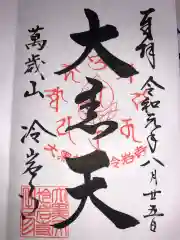 奉拝 令和元年八月廿五日
大黒天
萬歳山 冷岩寺